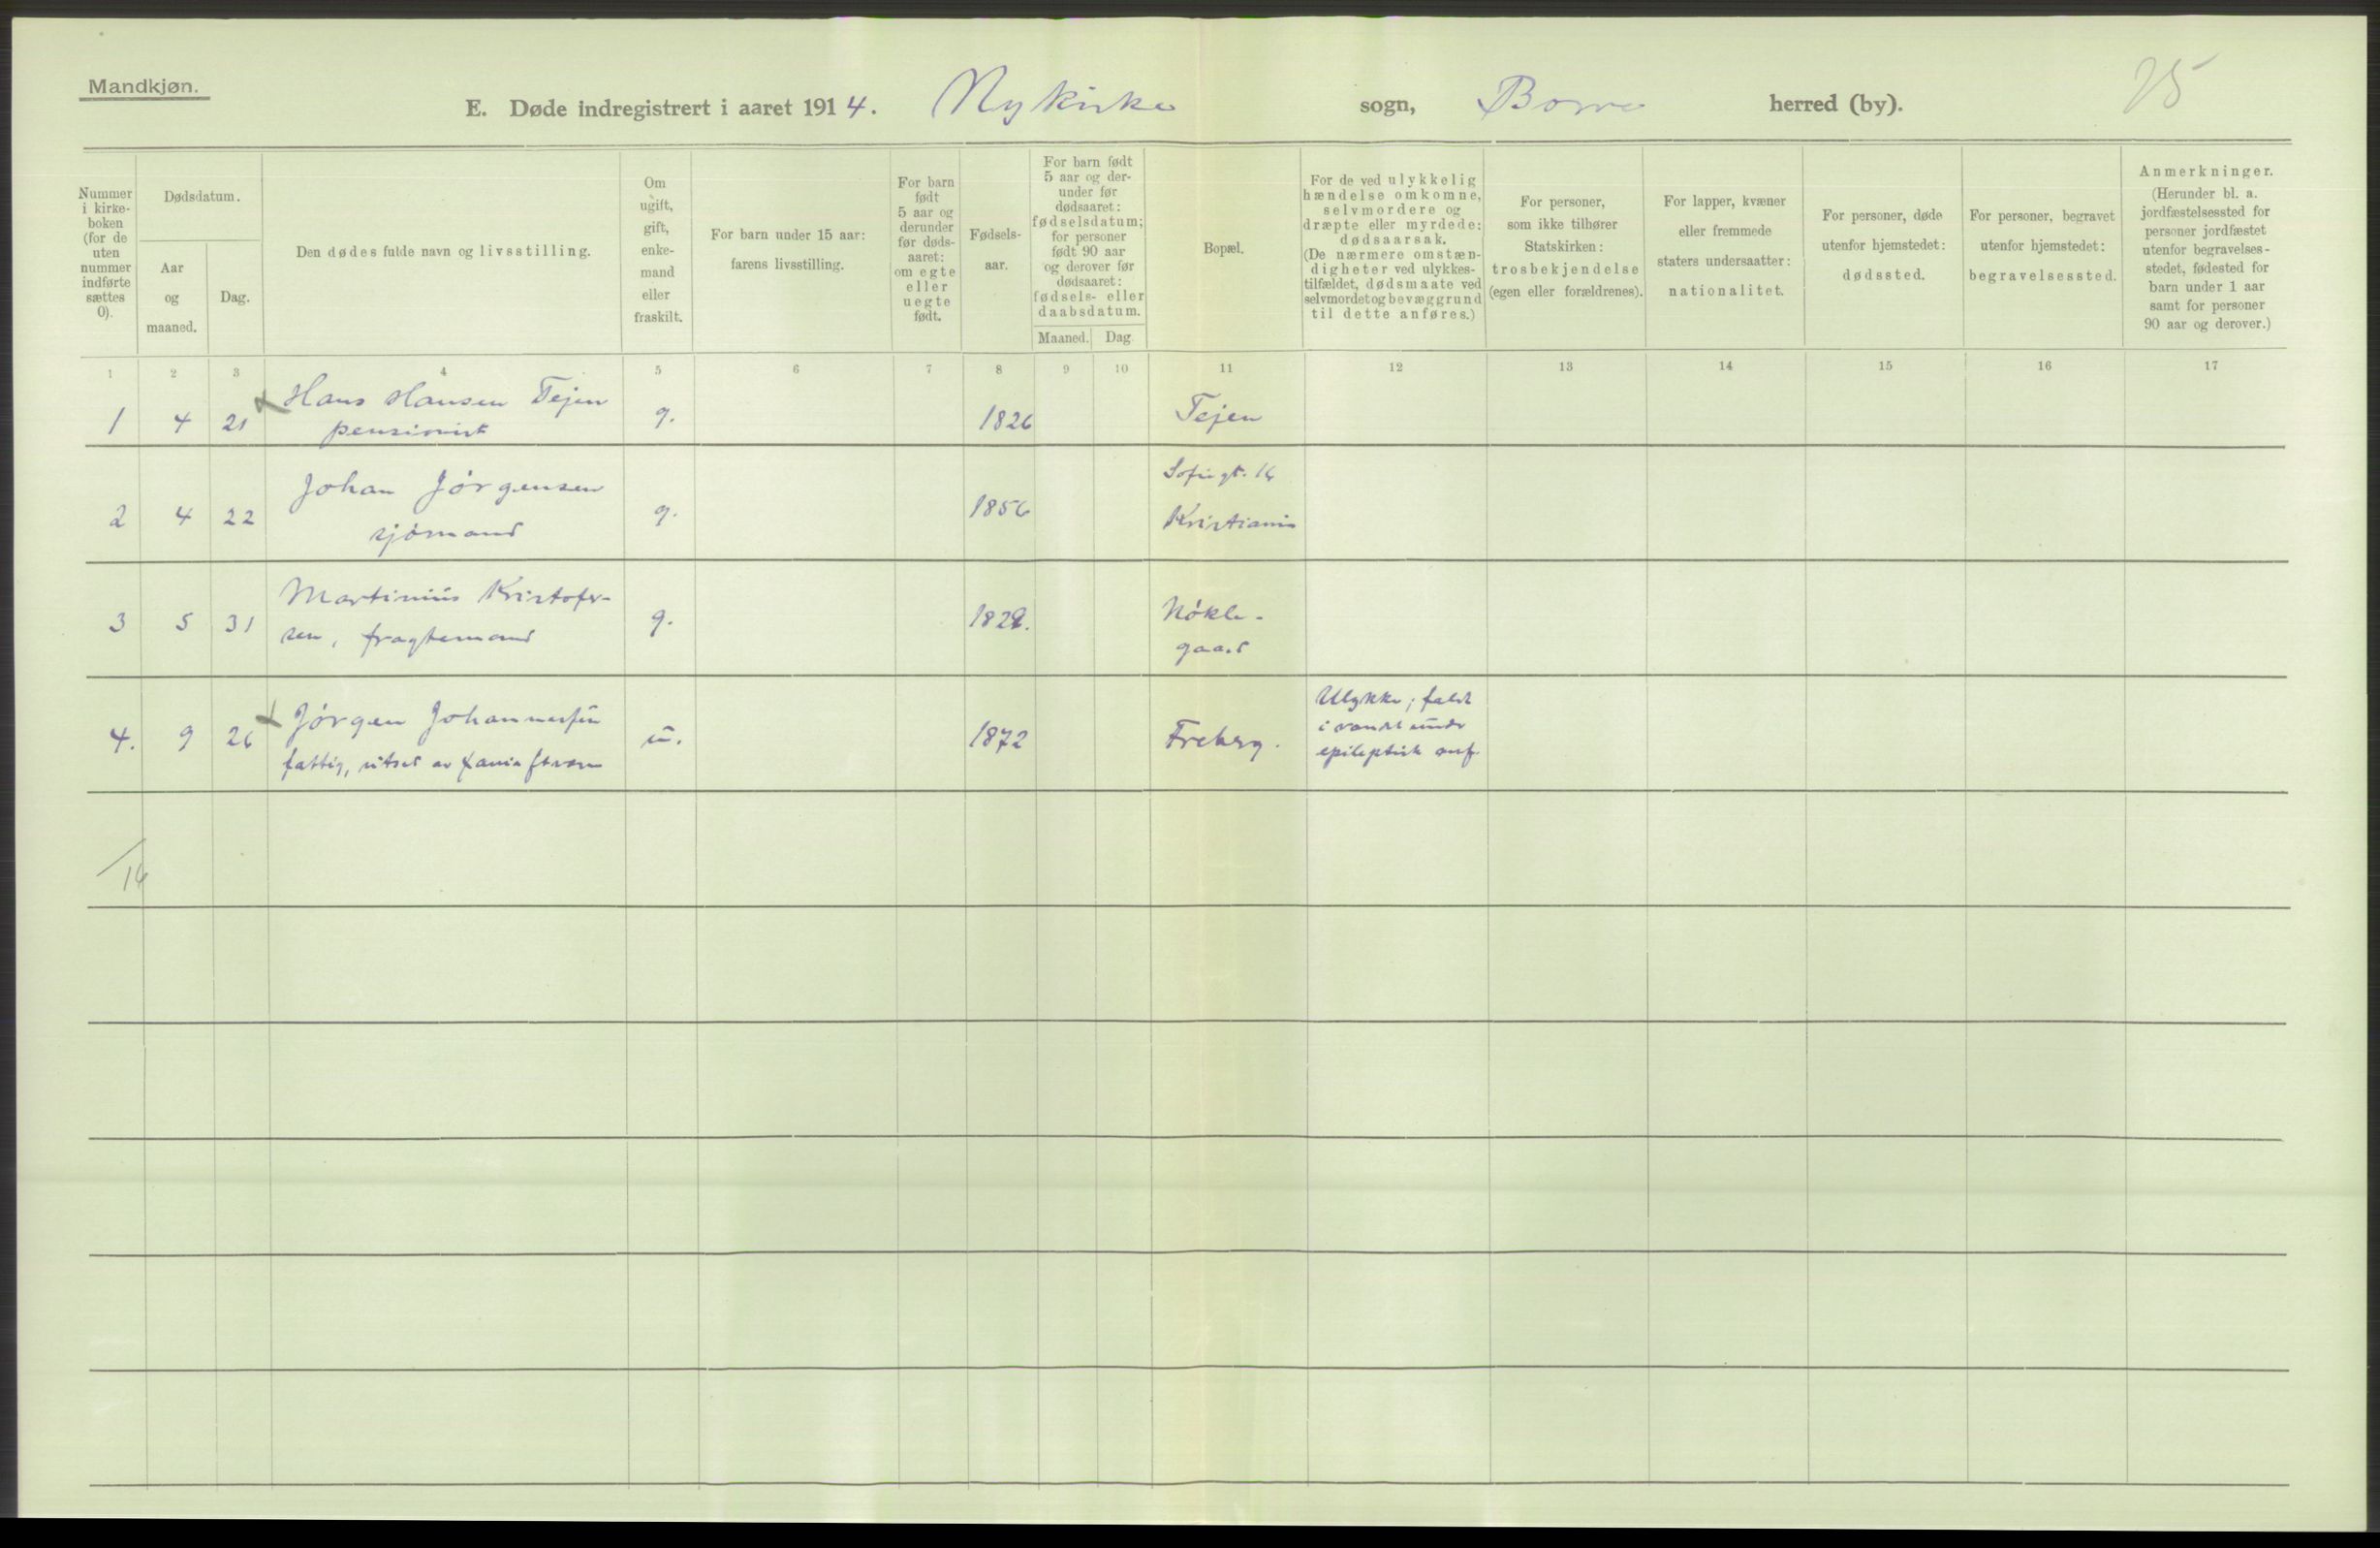 Mandkjøn.
E. Døde indregistrert i aaret 1914. Nykirke sogn, Borre herred (by).
25
Nummer i kirke-boken (for de uten nummer indførte sættes 0).
Dødsdatum.
Aar og maaned.
Dag.
Den dødes fulde navn og livsstilling.
Om ugift, gift, enke-mand eller fraskilt.
For barn under 15 aar: farens livsstilling.
For barn født 5 aar og derunder før døds-aaret: om egte eller uegte født.
Fødsels-aar.
For barn født 5 aar og der-under før dødsaaret: fødselsdatum; for personer født 90 aar og derover før dødsaaret: fødsels- eller daabsdatum.
Maaned.
Dag
Bopæl.
For de ved ulykkelig hændelse omkomne, selvmordere og dræpte eller myrdede: dødsaarsak. (De nærmere omstæn-digheter ved ulykkes-tilfældet, dødsmaate ved selvmordet og bevæggrund til dette anføres.)
For personer, som ikke tilhører Statskirken: trosbekjendelse (egen eller forældrenes).
For lapper, kvæner eller fremmede staters undersaatter: nationalitet.
For personer, døde utenfor hjemstedet: dødssted.
For personer, begravet utenfor hjemstedet: begravelsessted.
Anmerkninger. (Herunder bl. a. jordfæstelsessted for personer jordfæstet utenfor begravelses-stedet, fødested for barn under 1 aar samt for personer 90 aar og derover.)
1 2 3 4 5 6 7 8 9 10 11 12 13 14 15 16 17
1 4 21 Hans Hansen Tejen g. 1826 Tejen
pensionist
2 4 22 Johan Jørgensen g. 1856 Sofiegt. 14
sjømand Kristiania
3 5 31 Martinius Kristofer- g. 1829. Nøkle-
sen, fragtemand gaard
4. 9 26 Jørgen Johannessen u. 1872 Freberg. Ulykke; faldt
i vandet under
fattig, utsat av epileptisk anf.
/14